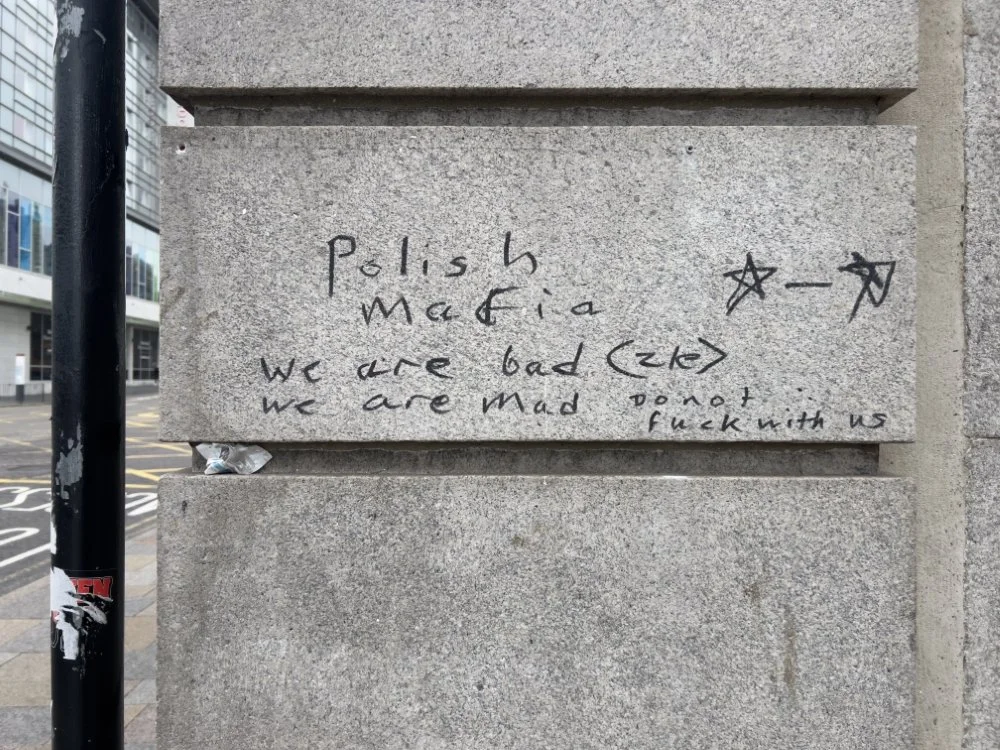 Polish
mafia
we are bad (zke)
we are mad Do not
fuck with us